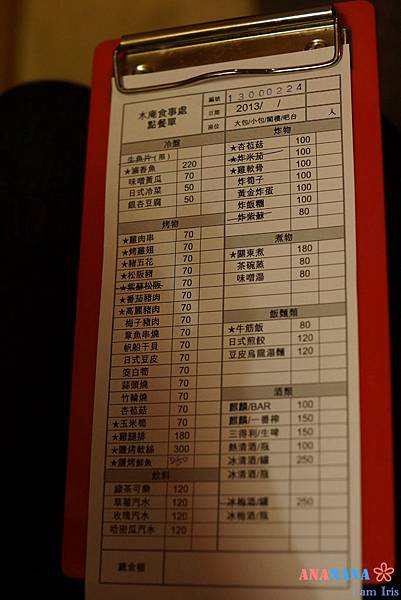 木庵食事處
點餐單
編號 13000224
日期 2013/ /
座位 大包/小包/閣樓/吧台 人
冷盤
生魚片(限)
★滷香魚 220
味噌黃瓜 70
日式冷菜 50
銀杏豆腐 50
烤物
★雞肉串 70
★烤雞翅 70
★豬五花 70
★松阪豬 70
★紫蘇松阪 70
★番茄豬肉 70
★高麗豬肉 70
梅子豬肉 70
章魚串燒 70
帆船干貝 70
日式豆皮 70
筊白筍 70
蒜頭燒 70
竹輪燒 70
杏苞菇 70
★玉米筍 70
★雞腿排 180
★鹽烤軟絲 300
★鹽烤鮮魚
飲料
綠茶可樂 120
草莓汽水 120
玫瑰汽水 120
哈密瓜汽水 120
總金額
炸物
★杏苞菇 100
★炸米茄 100
★雞軟骨 100
炸筍子 100
黃金炸蛋 100
炸飯糰 100
炸紫蘇 80
煮物
★關東煮 180
茶碗蒸 80
味噌湯 80
飯麵類
★牛筋飯 80
日式煎餃 120
豆皮烏龍湯麵 120
酒類
麒麟/BAR 100
麒麟/一番榨 150
三得利/生啤 150
熱清酒/瓶 100
冰清酒/罐 250
冰清酒/瓶
冰梅酒/罐 250
冰梅酒/瓶
ANANANA
I am Iris